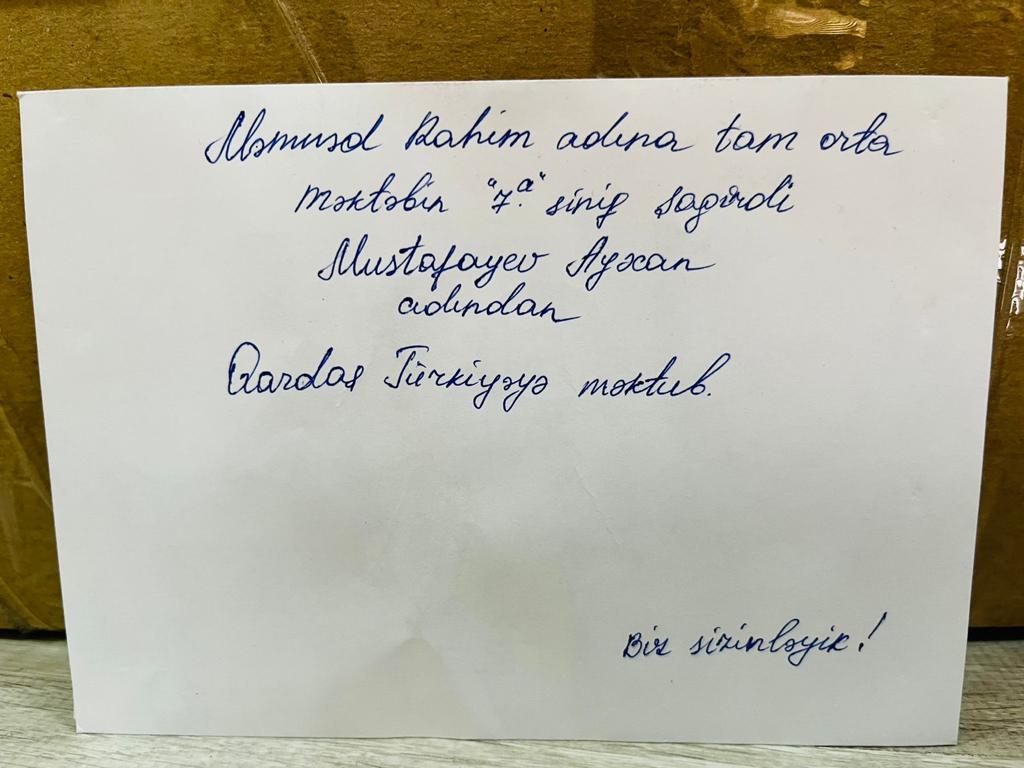 Məmməd Rahim adına tam orta
məktəbin "7ᵃ." sinif şagirdi
Mustafayev Ayxan
adından
Qardaş Türkiyəyə məktub.
Biz sizinləyik!